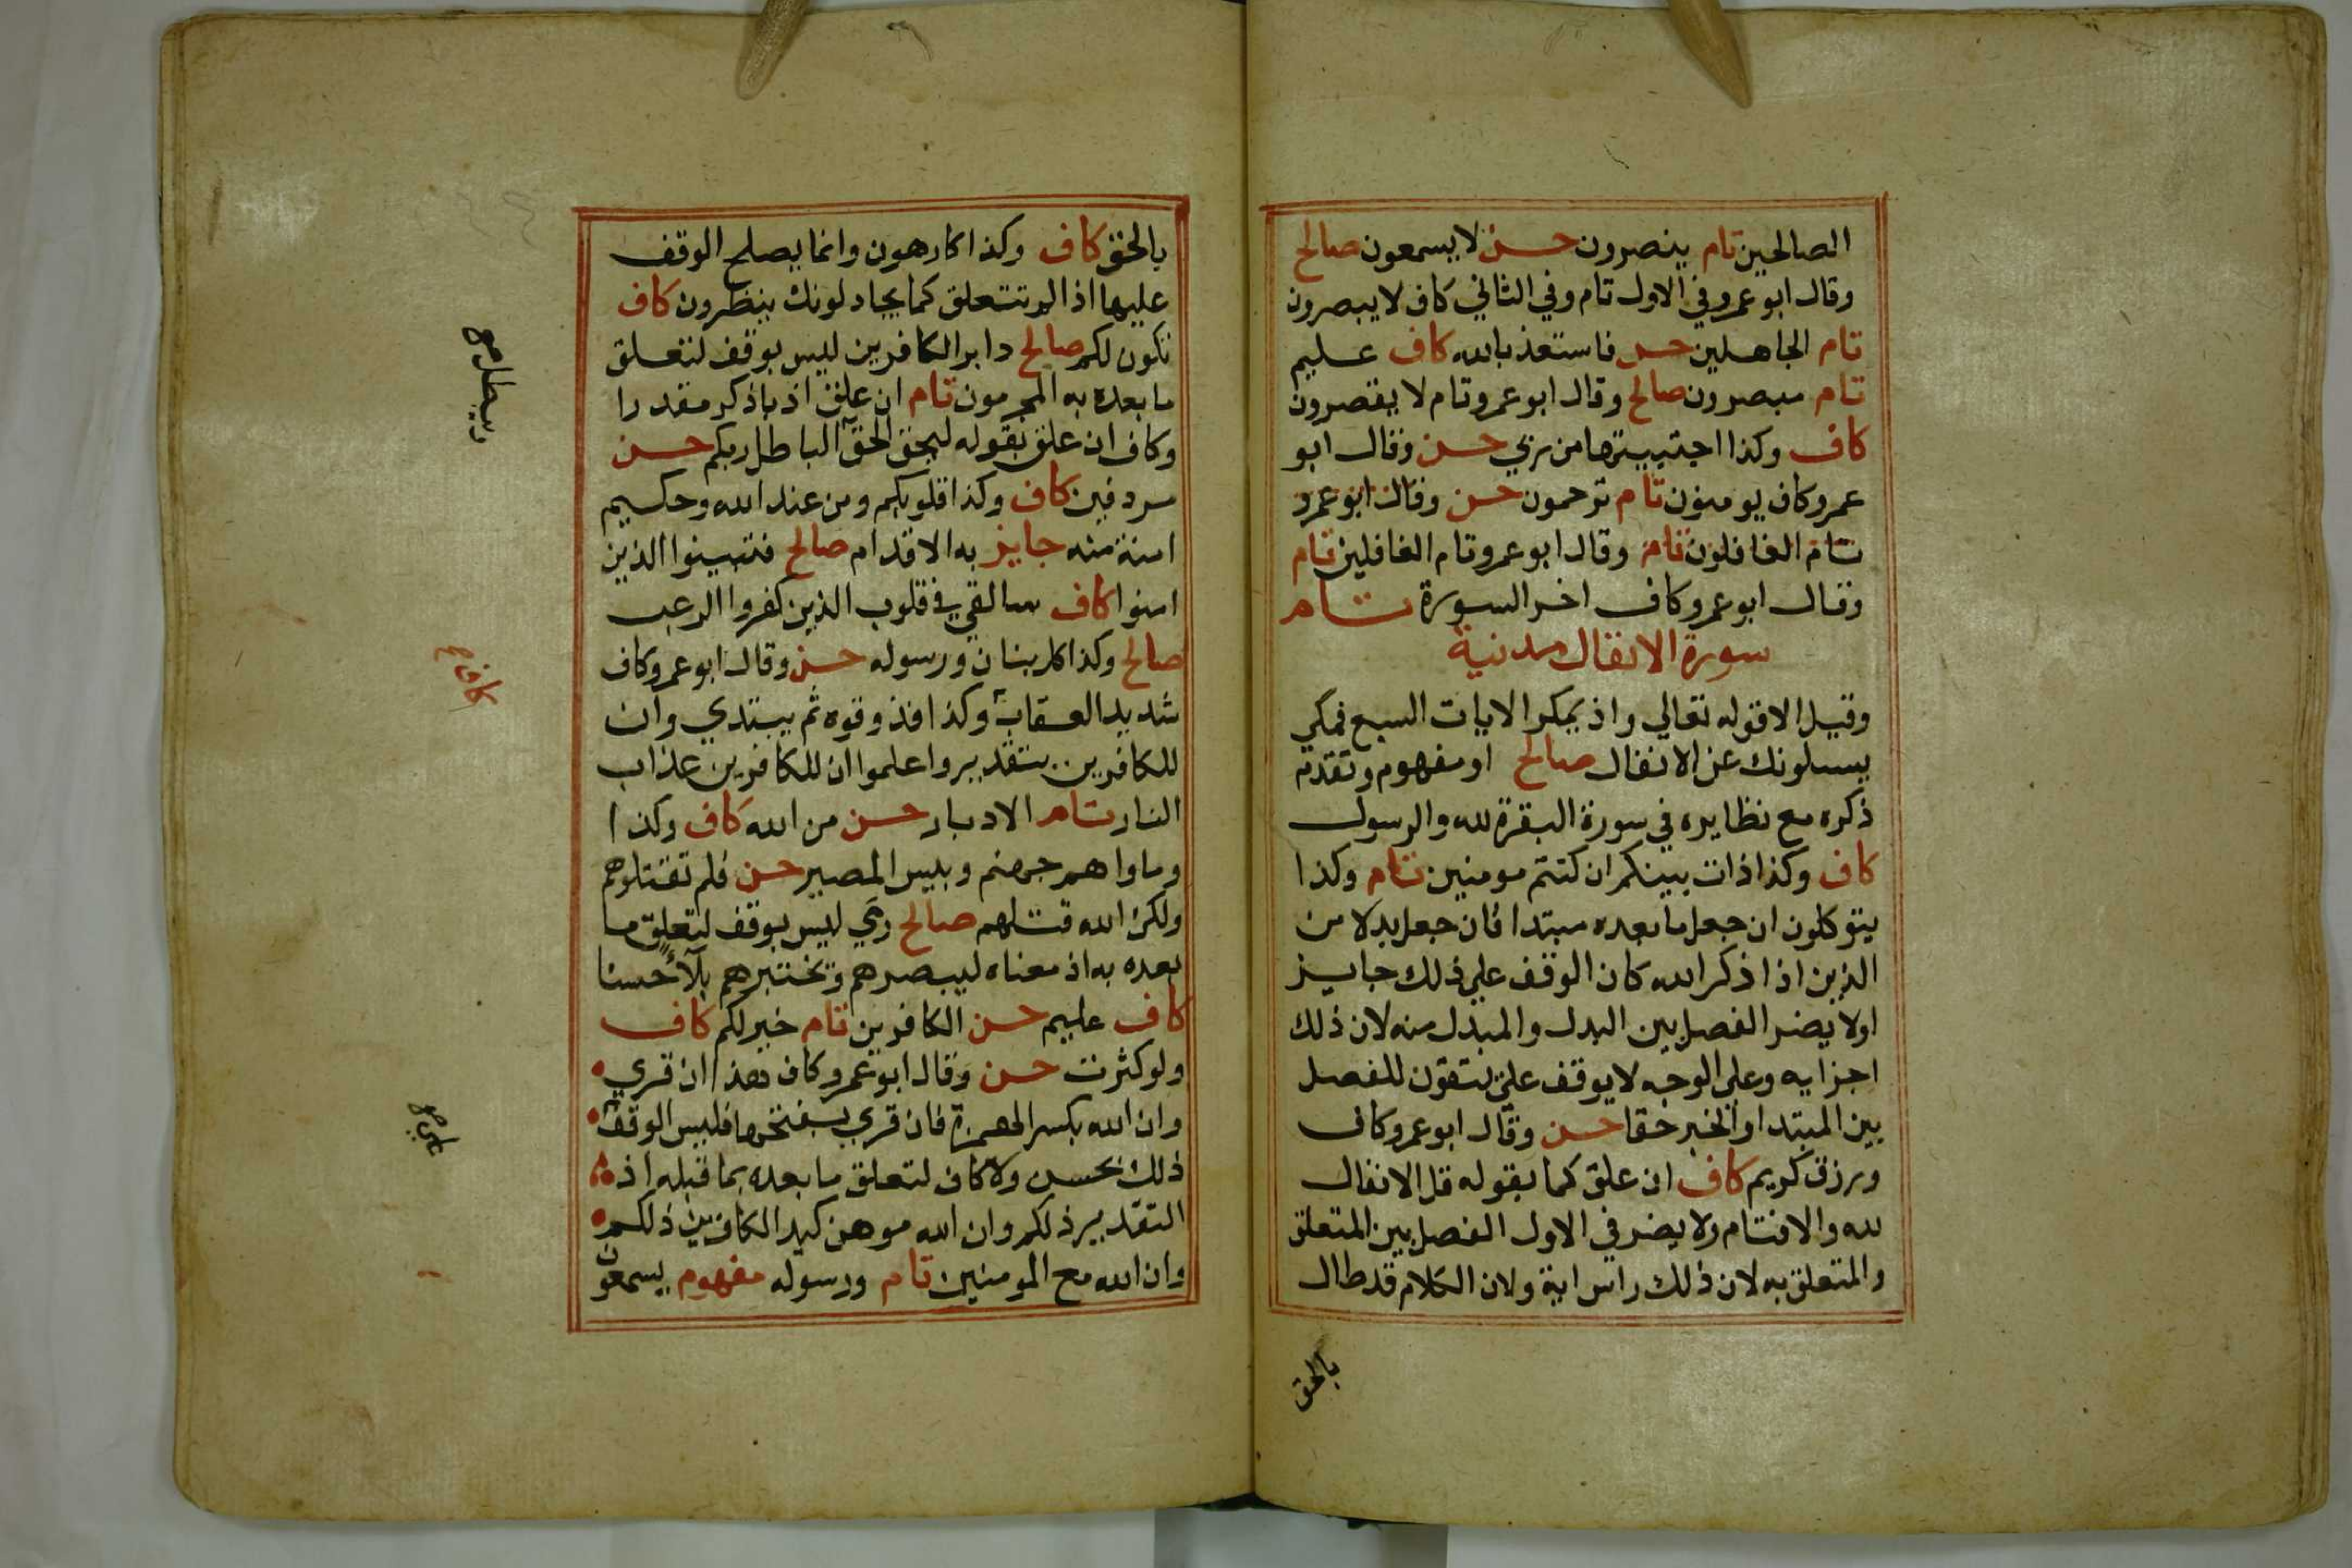 الصالحين تام ينصرون حسن لا يسمعون صالح
وقال ابو عمرو في الاول تام وفي الثاني كاف لا يبصرون
تام الجاهلين حسن فاستعذ بالله كاف عليم
تام مبصرون صالح وقال ابو عمرو تام لا يقصرون
كاف وكذا اجتبيتها من ربي حسن وقال ابو
عمرو كاف يومنون تام ترحمون حسن وقال ابو عمرو
تام الغافلون تام وقال ابو عمرو تام الغافلين تام
وقال ابو عمرو كاف اخر السورة تام
سورة الانفال مدنية
وقيل الا قوله تعالي واذ يمكر الايات السبع فمكي
يسلونك عن الانفال صالح او مفهوم وتقدم
ذكره مع نظايره في سورة البقرة لله والرسول
كاف وكذا ذات بينكم ان كنتم مومنين تام وكذا
يتوكلون ان جعل ما بعده مبتدا فان جعل بدلا من
الذين اذا ذكر الله كان الوقف علي ذلك جايز
اولا يضر الفصل بين البدل والمبدل منه لان ذلك
اجزايه وعلي الوجه لا يوقف علي ينفقون للفصل
بين المبتدا والخبر حقا حسن وقال ابو عمرو كاف
ورزق كريم كاف ان علق كما بقوله قل الانفال
لله والا فتام ولا يضر في الاول الفصل بين المتعلق
والمتعلق به لان ذلك راس اية ولان الكلام قد طال
بالحق
بالحق كاف وكذا كارهون وانما يصلح الوقف
عليها اذا لم تتعلق كما يجادلونك ينظرون كاف
تكون لكم صالح دابر الكافرين ليس بوقف لتعلق
ما بعده به المجرمون تام ان علق اذ باذكر مقدرا
وكاف ان علق بقوله ليحق الحق الباطل ربكم حسن
مردفين كاف وكذا قلوبكم ومن عند الله وحكيم
امنة منه جايز به الاقدام صالح فثبتوا الذين
امنوا كاف سالقي في قلوب الذين كفروا الرعب
صالح وكذا كل بنان ورسوله حسن وقال ابو عمرو كاف
شديد العقاب وكذا فذوقوه ثم يبتدي وان
للكافرين بتقدير واعلموا ان للكافرين عذاب
النار تام الادبار حسن من الله كاف وكذا
وماواهم جهنم وبيس المصير حسن فلم تقتلوهم
ولكن الله قتلهم صالح رمي ليس بوقف لتعلق ما
بعده به اذ معناه ليبصرهم ويختبرهم بلاء حسنا
كاف عليم حسن الكافرين تام خير لكم كاف
ولو كثرت حسن وقال ابو عمرو كاف هذا ان قري
وان الله بكسر الهمزة فان قري بفتحها فليس الوقف
ذلك بحسن ولا كاف لتعلق ما بعده بما قبله اذ
التقدير ذلكم وان الله موهن كيد الكافرين ذلكم
وان الله مع المومنين تام ورسوله مفهوم يسمعون
ويبطل صح
كاف صح
علي صح